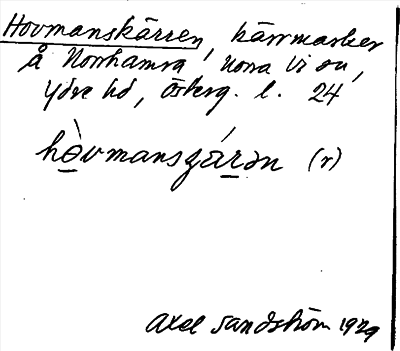 Hovmanskärren, kärrmarker
å Norrhamra, Norra Vi sn,
Ydre hd, Österg. l. 24
hòvmansʒárən (r)
Axel Sandström 1929